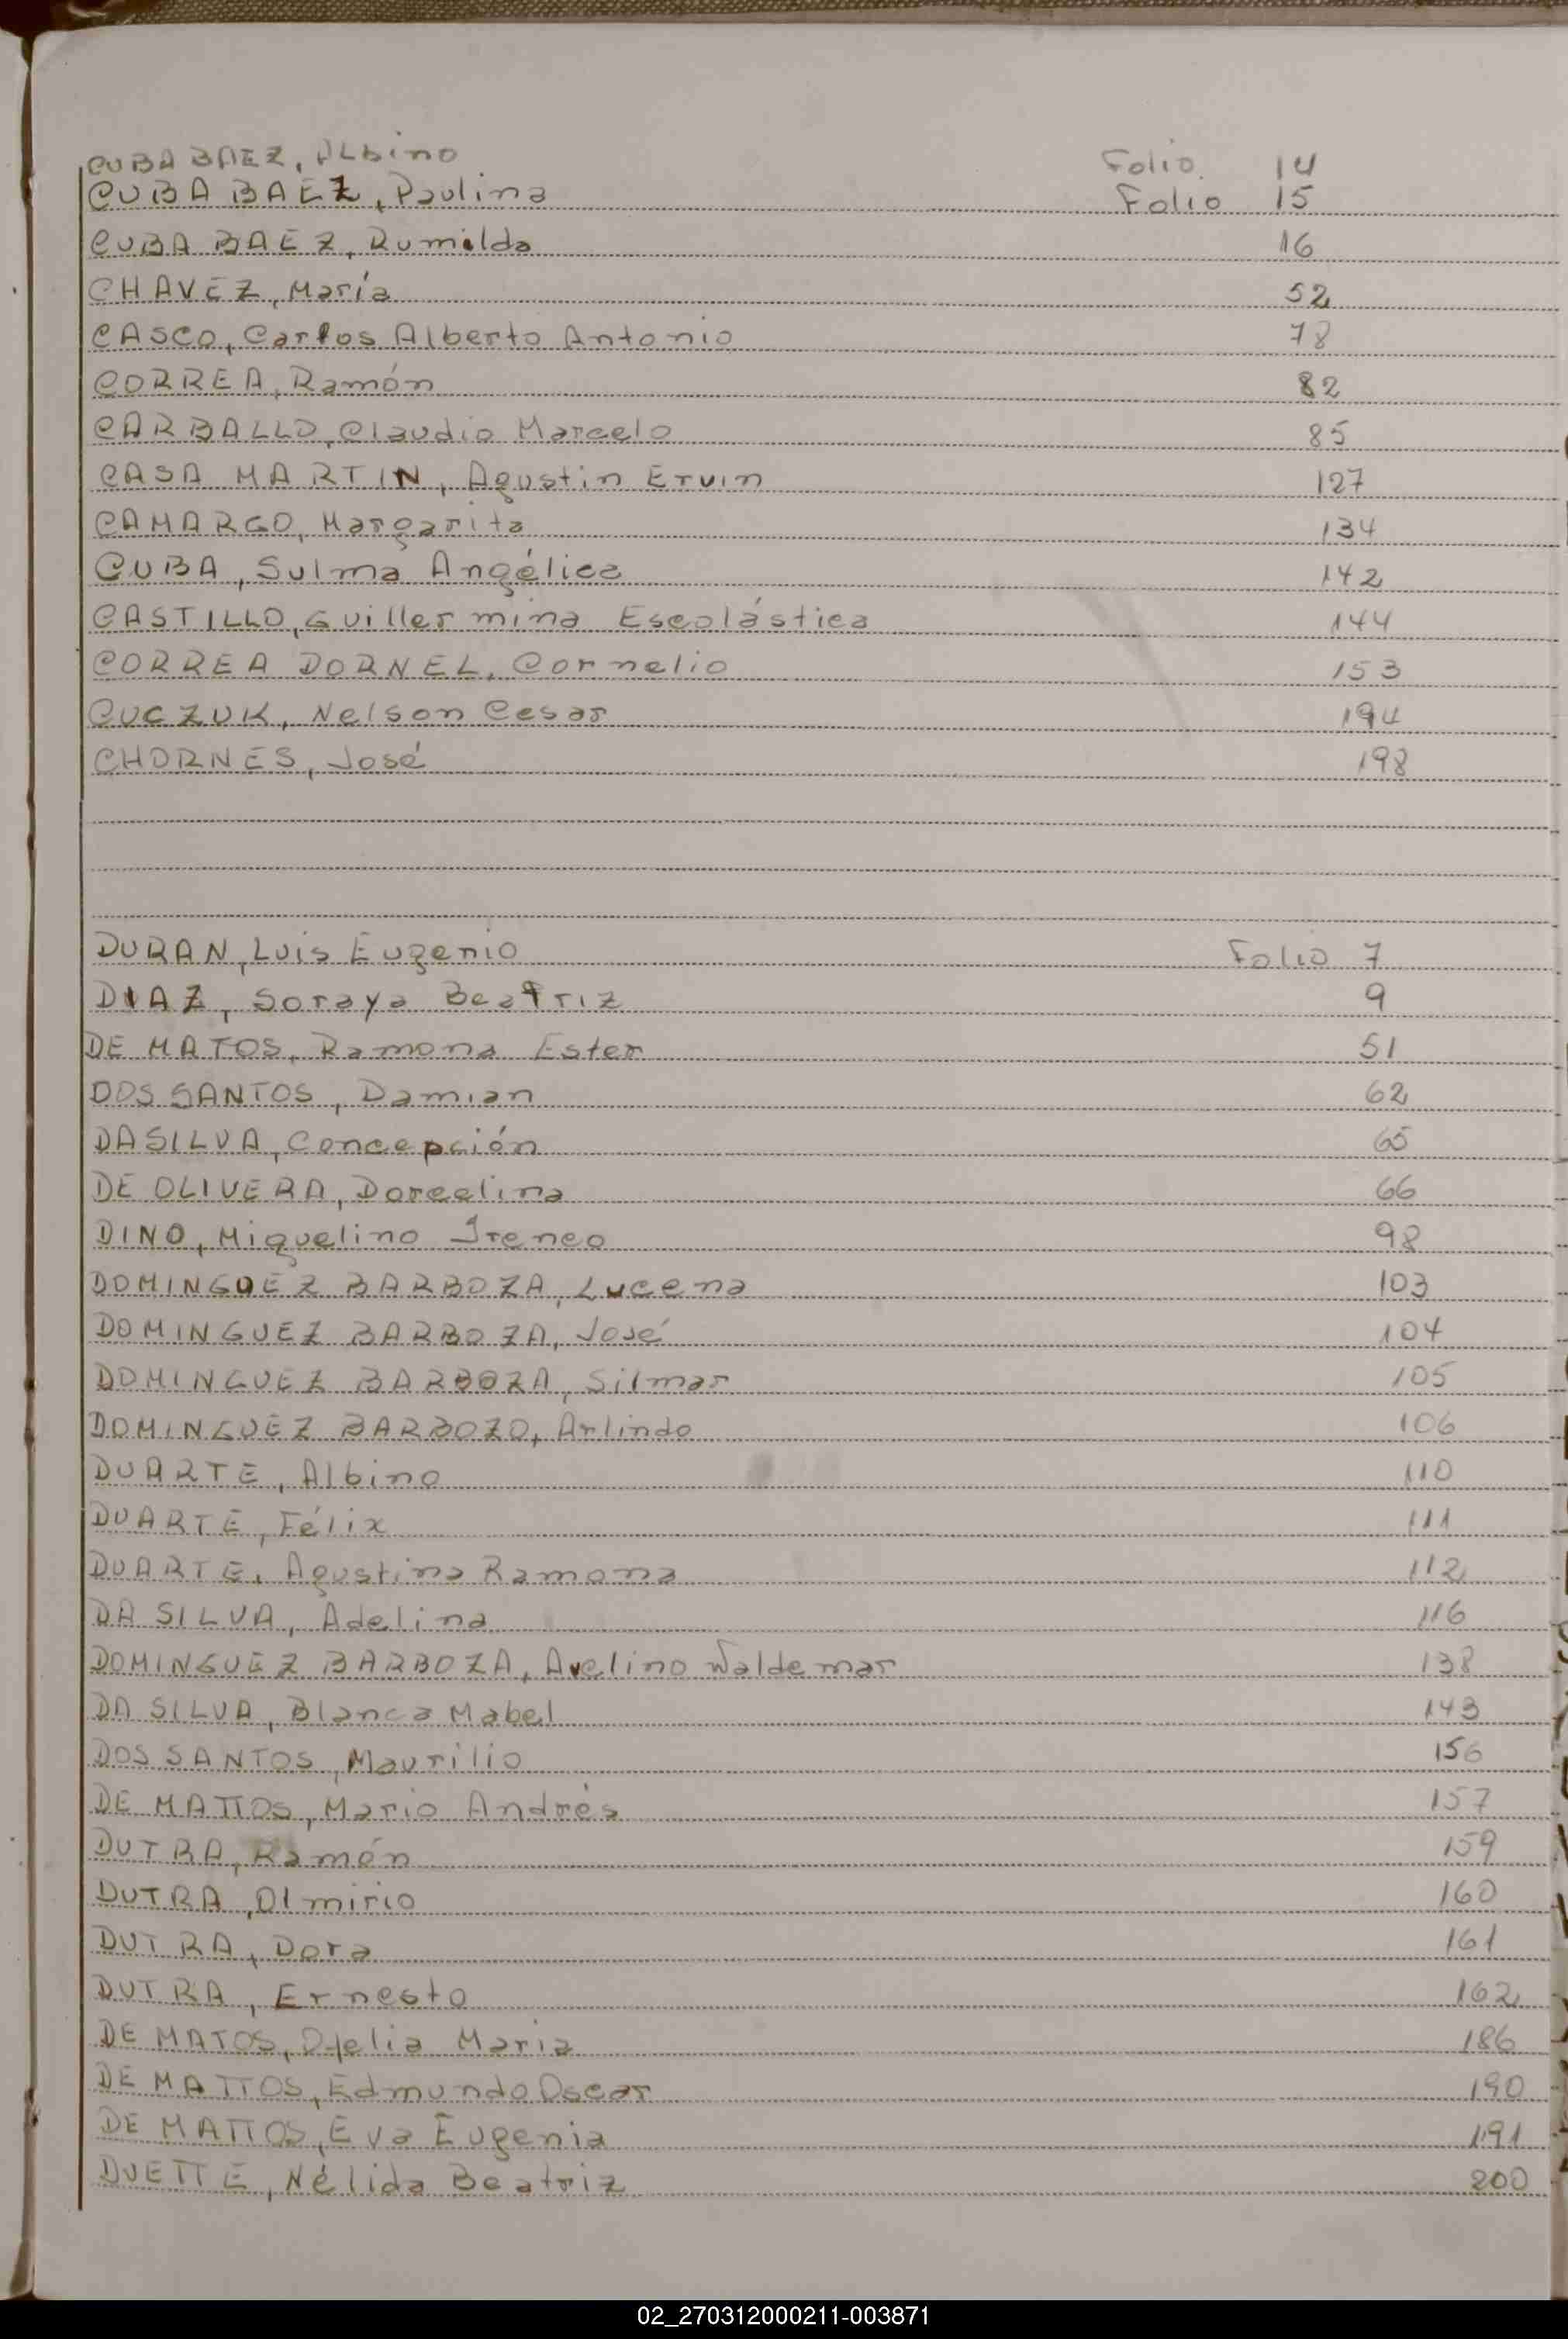 CUBA BAEZ, Albino Folio. 14
CUBA BAEZ, Paulina Folio 15
CUBA BAEZ, Rumilda 16
CHAVEZ, María 52
CASCO, Carlos Alberto Antonio 78
CORREA, Ramón 82
CARBALLO, Claudio Marcelo 85
CASA MARTIN, Agustin Ervin 127
CAMARGO, Margarita 134
CUBA, Sulma Angélica 142
CASTILLO, Guillermina Escolástica 144
CORREA DORNEL, Cornelio 153
CUCZUK, Nelson Cesar 194
CHORNES, José 198
DURAN, Luis Eugenio Folio 7
DIAZ, Soraya Beatriz 9
DE MATOS, Ramona Ester 51
DOS SANTOS, Damian 62
DASILVA, Concepción 65
DE OLIVERA, Dorcelina 66
DINO, Miguelino Ireneo 98
DOMINGUEZ BARBOZA, Lucena 103
DOMINGUEZ BARBOZA, José 104
DOMINGUEZ BARBOZA, Silmar 105
DOMINGUEZ BARBOZO, Arlindo 106
DUARTE, Albino 110
DUARTE, Félix 111
DUARTE, Agustina Ramona 112
DA SILVA, Adelina 116
DOMINGUEZ BARBOZA, Avelino Waldemar 138
DA SILVA, Blanca Mabel 143
DOS SANTOS, Maurilio 156
DE MATTOS, Mario Andrés 157
DUTRA, Ramón 159
DUTRA, Olmirio 160
DUTRA, Dora 161
DUTRA, Ernesto 162
DE MATOS, Ofelia Maria 186
DE MATTOS, Edmundo Oscar 190
DE MATTOS, Eva Eugenia 191
DUETTE, Nélida Beatriz 200
02_270312000211-003871